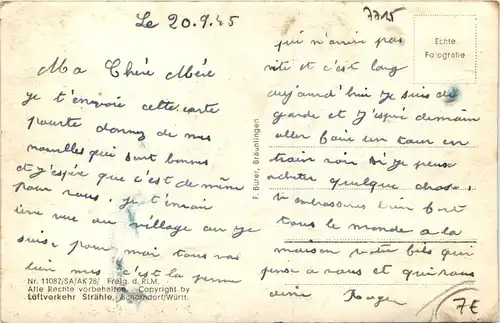 Le 20.9.45
7715
Ma Chère Mère
je t'envoie cette carte
pourte donnez de mes
nouvelles qui sont bonnes
et j'espère que c'est de même
pour vous. je t'envoi
une vue du village ou je
suis. pour moi tous vas
bien mes c'est la
Nr. 11087/SA/AK 28/ Freig. d. RLM.
Alte Rechte vorbehalten. Copyright by
Luftverkehr Strähle, Schorndorf/Württ.
F. Bürer, Bräunlingen
qui n'arrive pas
vite et c'est long
aujourd'hui je suis de
garde et j'espère demain
aller faire un tour en
train voir si je peux
acheter quelque chose.
tu embrasseras bien fort
tous le monde a la
maison votre fils qui
pense a vous et qui vous
aime Roger
Echte
Fotografie
7€